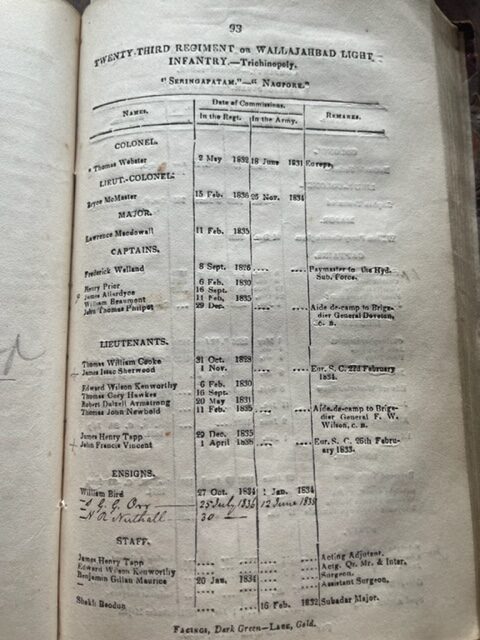 93
TWENTY-THIRD REGIMENT OR WALLAJAHBAD LIGHT
INFANTRY.—Trichinopoly.
"SERINGAPATAM."—"NAGPORE."
NAMES. Date of Commissions. REMARKS.
In the Regt. In the Army.
COLONEL.
Thomas Webster 2 May 1832 18 June 1831 Europe.
LIEUT.-COLONEL.
Bryce McMaster 15 Feb. 1836 26 Nov. 1834
MAJOR.
Lawrence Macdowall 11 Feb. 1835
CAPTAINS.
Frederick Welland 8 Sept. 1826 .... .... Paymaster to the Hyd.
Sub. Force.
Henry Prior 6 Feb. 1830
James Allardyce 16 Sept.
William Beaumont 11 Feb. 1835
John Thomas Philpot 29 Dec. .... .... Aide-de-camp to Briga-
dier General Doveton,
C. B.
LIEUTENANTS.
Thomas William Cooke 31 Oct. 1828
James Isaac Sherwood 1 Nov. .... .... Eur. S. C. 22d February
1834.
Edward Wilson Kenworthy 6 Feb. 1830
Thomas Gory Hawkes 16 Sept.
Robert Dalzell Armstrong 20 May 1831
Thomas John Newbold 11 Feb. 1835 .... .... Aide-de-camp to Briga-
dier General F. W.
Wilson, C. B.
James Henry Tapp 29 Dec. 1835
John Francis Vincent 1 April 1836 .... .... Eur. S. C. 26th Febru-
ary 1833.
ENSIGNS.
William Bird 27 Oct. 1834 1 Jan. 1834
G. G. Orr 25 July 1836 12 June 1835
H R Nuthall 30 —
STAFF.
James Henry Tapp .... .... .... .... Acting Adjutant.
Edward Wilson Kenworthy .... .... .... .... Actg. Qr. Mr. & Inter.
Benjamin Gilian Maurice 20 Jan. 1834 .... .... Surgeon.
.... .... .... .... Assistant Surgeon.
Shaikh Beodun .... .... 16 Feb. 1832 Subadar Major.
FACINGS, Dark Green—LACE, Gold.